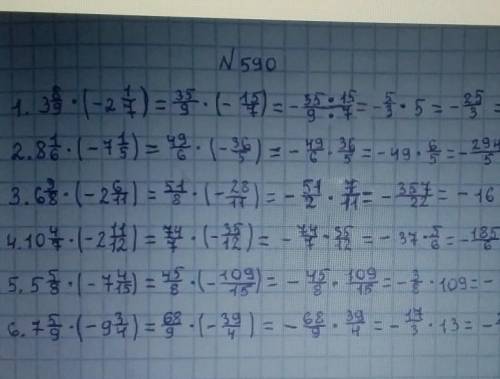 N 590
1. 3 8/9 · (-2 1/7) = 35/9 · (-15/7) = - 35·15/9·7 = - 5/3 · 5 = - 25/3 =
2. 8 1/6 · (-7 1/5) = 49/6 · (-36/5) = - 49/6 · 36/5 = -49 · 6/5 = - 294/5
3. 6 3/8 · (-2 6/11) = 51/8 · (-28/11) = - 51/2 · 7/11 = - 357/22 = - 16
4. 10 4/7 · (-2 11/12) = 74/7 · (-35/12) = - 74/7 · 35/12 = - 37 · 5/6 = - 185/6
5. 5 5/8 · (-7 4/15) = 45/8 · (-109/15) = - 45/8 · 109/15 = - 3/8 · 109 = -
6. 7 5/9 · (-9 3/4) = 68/9 · (-39/4) = - 68/9 · 39/4 = - 17/3 · 13 = -